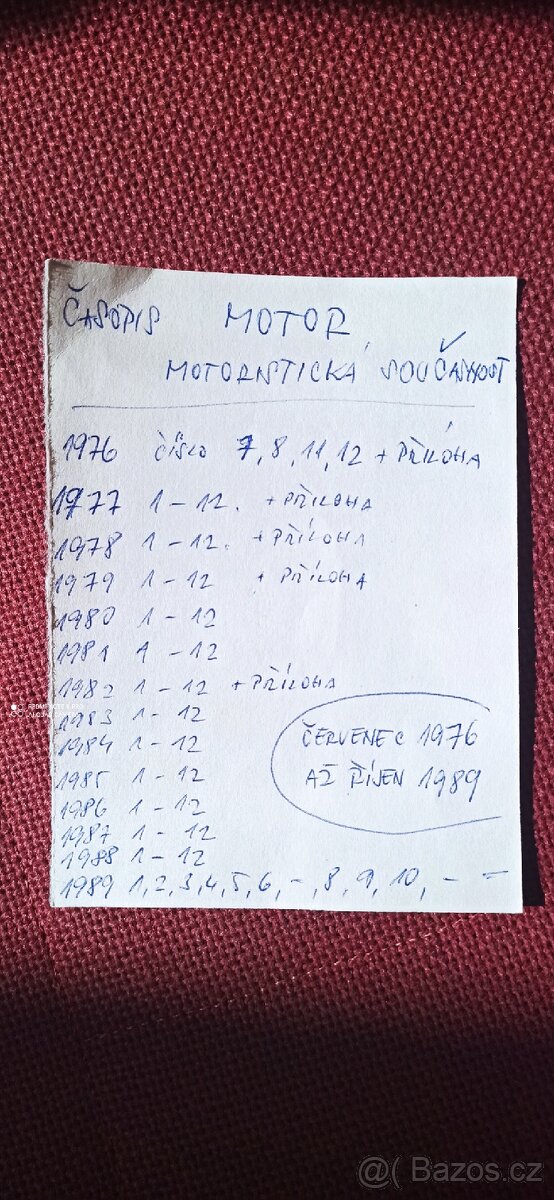 ČASOPIS MOTOR
MOTORISTICKÁ SOUČASNOST
1976 ČÍSLO 7, 8, 11, 12 + PŘÍLOHA
1977 1 - 12. + PŘÍLOHA
1978 1 - 12. + PŘÍLOHA
1979 1 - 12 + PŘÍLOHA
1980 1 - 12
1981 1 - 12
1982 1 - 12 + PŘÍLOHA
1983 1 - 12
1984 1 - 12
1985 1 - 12
1986 1 - 12
1987 1 - 12
1988 1 - 12
1989 1, 2, 3, 4, 5, 6, -, 8, 9, 10, - -
ČERVENEC 1976
AŽ ŘÍJEN 1989
@( Bazos.cz